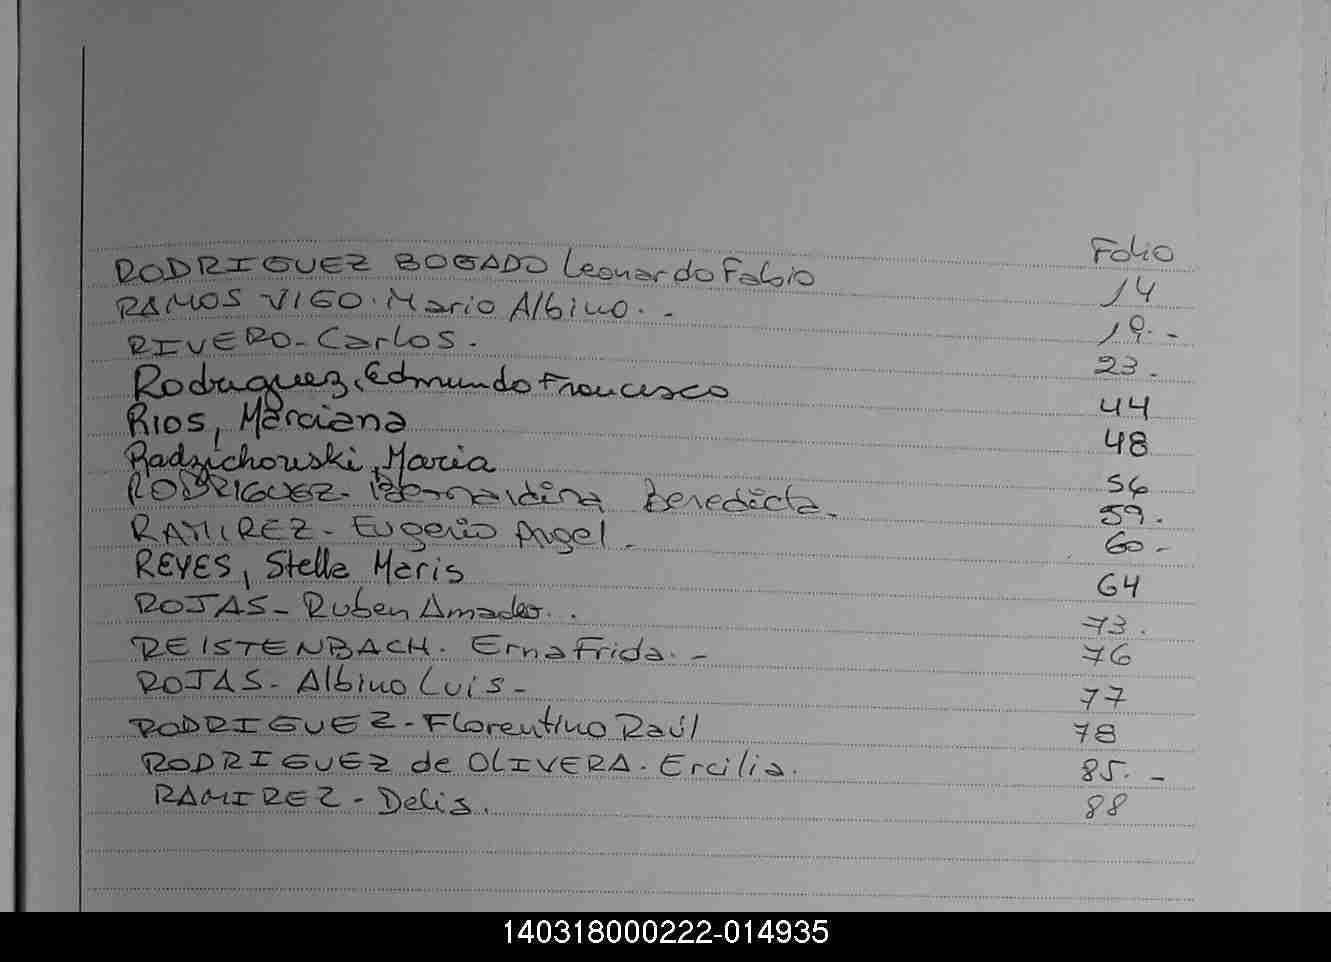 Folio
RODRIGUEZ BOGADO Leonardo Fabio 14
RAMOS VIGO. Mario Albino. - 19. -
RIVERO - Carlos. 23.
Rodriguez, Edmundo Francesco 44
RIOS, Marciana 48
Radzichowski, Maria 56
RODRIGUEZ - Bernardina Benedicta. 59.
RAMIREZ - Eugenio Angel. 60 -
REYES, Stella Maris 64
ROJAS - Ruben Amadeo. . 73.
REISTENBACH. Erna Frida. - 76
ROJAS - Albino Luis - 77
RODRIGUEZ - Florentino Raúl 78
RODRIGUEZ de OLIVERA. Ercilia. 85. -
RAMIREZ - Delis. 88
140318000222-014935